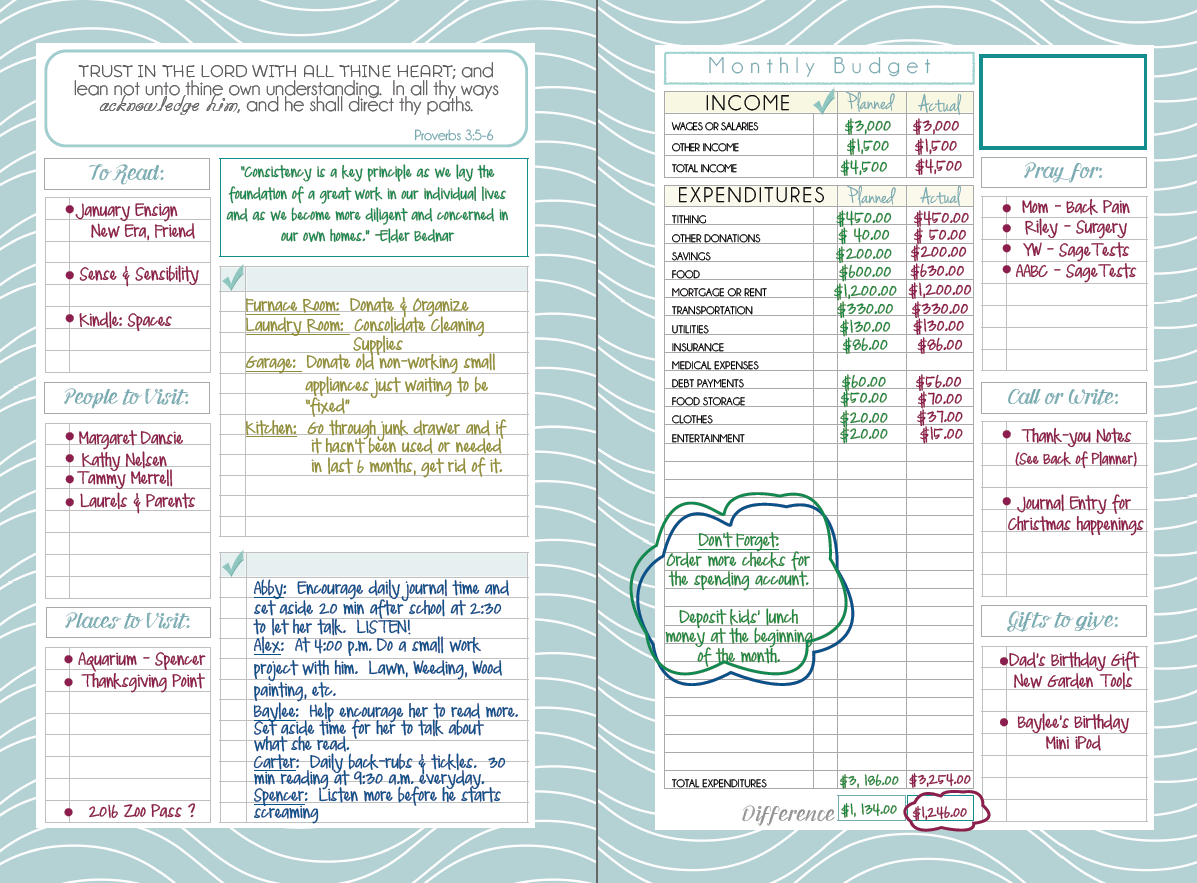 TRUST IN THE LORD WITH ALL THINE HEART; and
lean not unto thine own understanding. In all thy ways
acknowledge him, and he shall direct thy paths.
Proverbs 3:5-6
To Read:
January Ensign
New Era, Friend
Sense & Sensibility
Kindle: Spaces
People to Visit:
Margaret Dansie
Kathy Nelsen
Tammy Merrell
Laurels & Parents
Places to Visit:
Aquarium - Spencer
Thanksgiving Point
2016 Zoo Pass ?
"Consistency is a key principle as we lay the
foundation of a great work in our individual lives
and as we become more diligent and concerned in
our own homes." -Elder Bednar
Furnace Room: Donate & Organize
Laundry Room: Consolidate Cleaning
Supplies
Garage: Donate old non-working small
appliances just waiting to be
"fixed"
Kitchen: Go through junk drawer and if
it hasn't been used or needed
in last 6 months, get rid of it.
Abby: Encourage daily journal time and
set aside 20 min after school at 2:30
to let her talk. LISTEN!
Alex: At 4:00 p.m. Do a small work
project with him. Lawn, Weeding, Wood
painting, etc.
Baylee: Help encourage her to read more.
Set aside time for her to talk about
what she read.
Carter: Daily back-rubs & tickles. 30
min reading at 9:30 a.m. everyday.
Spencer: Listen more before he starts
screaming
Monthly Budget
INCOME Planned Actual
WAGES OR SALARIES $3,000 $3,000
OTHER INCOME $1,500 $1,500
TOTAL INCOME $4,500 $4,500
EXPENDITURES Planned Actual
TITHING $450.00 $450.00
OTHER DONATIONS $ 40.00 $ 50.00
SAVINGS $200.00 $200.00
FOOD $600.00 $630.00
MORTGAGE OR RENT $1,200.00 $1,200.00
TRANSPORTATION $330.00 $330.00
UTILITIES $130.00 $130.00
INSURANCE $86.00 $86.00
MEDICAL EXPENSES
DEBT PAYMENTS $60.00 $56.00
FOOD STORAGE $50.00 $70.00
CLOTHES $20.00 $37.00
ENTERTAINMENT $20.00 $15.00
Don't Forget:
Order more checks for
the spending account.
Deposit kids' lunch
money at the beginning
of the month.
TOTAL EXPENDITURES $3, 186.00 $3,254.00
Difference $1, 134.00 $1,246.00
Pray for:
Mom - Back Pain
Riley - Surgery
YW - Sage Tests
AABC - Sage Tests
Call or Write:
Thank-you Notes
(See Back of Planner)
Journal Entry for
Christmas happenings
Gifts to give:
Dad's Birthday Gift
New Garden Tools
Baylee's Birthday
Mini iPod